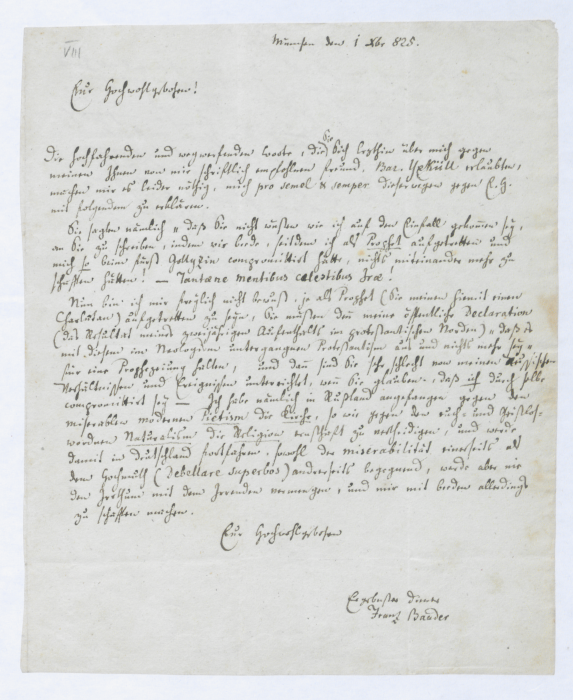 VIII
München den 1 Xbr 825.
Eur Hochwohlgebohren!
Sie
Die hochfahrenden und wegwerfenden Worte, die Sich letzthin über mich gegen
meinen Ihnen von mir schriftlich empfohlnen Freund, Bar. Yxküll erlaubten,
machen mir es leider nöthig, mich pro semel & semper dieserwegen gegen E. H.
mit folgendem zu erklären.
Sie sagten nämlich "daß Sie nicht wüßten wie ich auf den Einfall gekommen sey,
an Sie zu schreiben, indem wir beide, seitdem ich als Prophet aufgetretten und
mich so beim Fürst Gallyzin compromittirt hätte, nichts miteinander mehr zu
schaffen hätten! — Tantaene mentibus celestibus Irae!
Nun bin ich mir freylich nicht bewußt, je als Prophet (Sie meinen hiemit einen
Charlatan) aufgetretten zu seyn, Sie müßten den meine öffentliche Declaration
(das Resultat meines zweijährigen Aufenthalts im protestantischen Norden), "daß es
mit diesem im Neologism untergangnen Protestantism aus und nichts mehr sey"
für eine Prophezeiung halten, und dann sind Sie sehr schlecht von meinen Russischen
Verhältnissen und Ereignissen unterrichtet, wenn Sie glauben, daß ich durch selbe
compromittirt sey — Ich habe nämlich in Rußland angefangen gegen den
miserablen modernen Pietism die Kirche, so wie gegen den ruch- und geistlos-
wordnen Naturalism die Religion ernsthaft zu vertheidigen, und werde
damit in Deutschland fortfahren, sowohl der miserabilität einerseits als
dem Hochmuth (debellare superbos) anderseits begegnend, werde aber nie
den Irrthum mit dem Irrenden vermengen, und nur mit beeden allerdings
zu schaffen machen.
Eur Hochwohlgebohren
Ergebenster Diener
Franz Baader